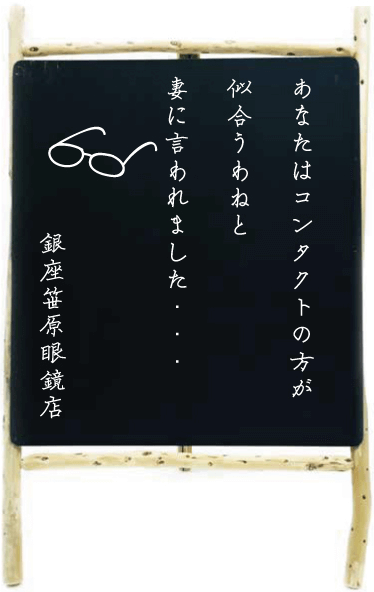 あなたはコンタクトの方が
似合うわねと
妻に言われました・・・
銀座笹原眼鏡店